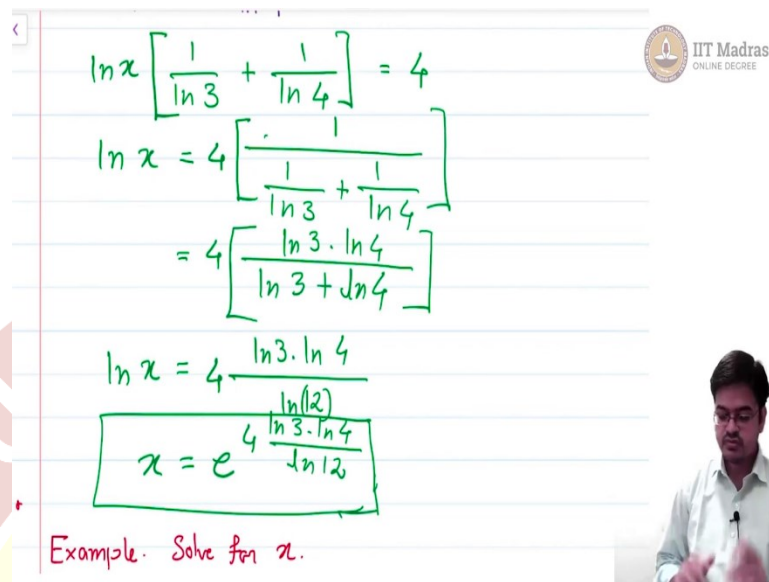 IIT Madras
ONLINE DEGREE
ln x [ 1/ln 3 + 1/ln 4 ] = 4
ln x = 4 [ 1 / ( 1/ln 3 + 1/ln 4 ) ]
= 4 [ ln 3 . ln 4 / ln 3 + ln 4 ]
ln x = 4 ln 3 . ln 4 / ln(12)
x = e^4 ln 3 . ln 4 / ln 12
Example. Solve for x.